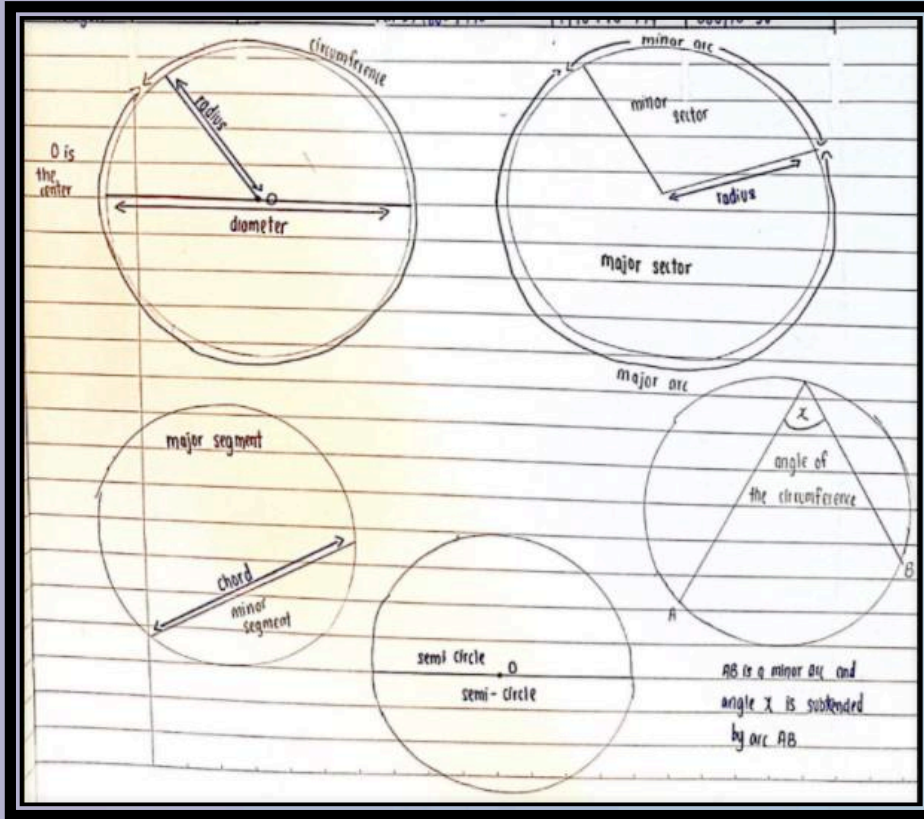 circumference
radius
O is
the
center
O
diameter
minor arc
minor
sector
radius
major sector
major arc
major segment
chord
minor
segment
x
angle of
the circumference
A
B
semi circle
O
semi-circle
AB is a minor arc and
angle x is subtended
by arc AB